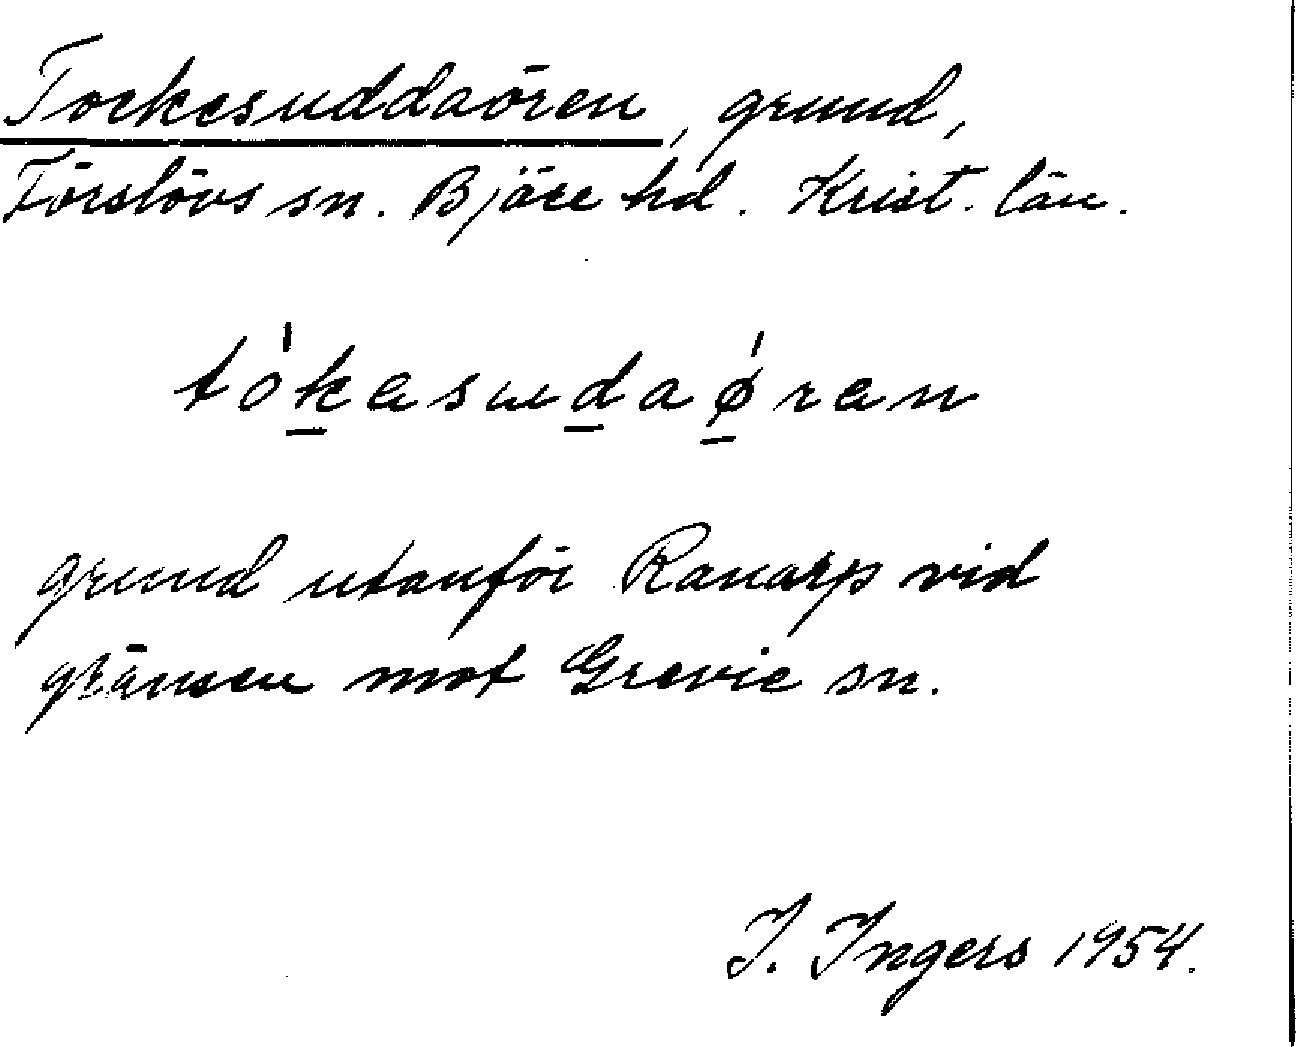 Tockesuddaören, grund,
Förslövs sn. Bjäre hd. Krist. län.
tókesudaǿren
grund utanför Ranarp vid
gränsen mot Grevie sn.
I. Ingers 1954.